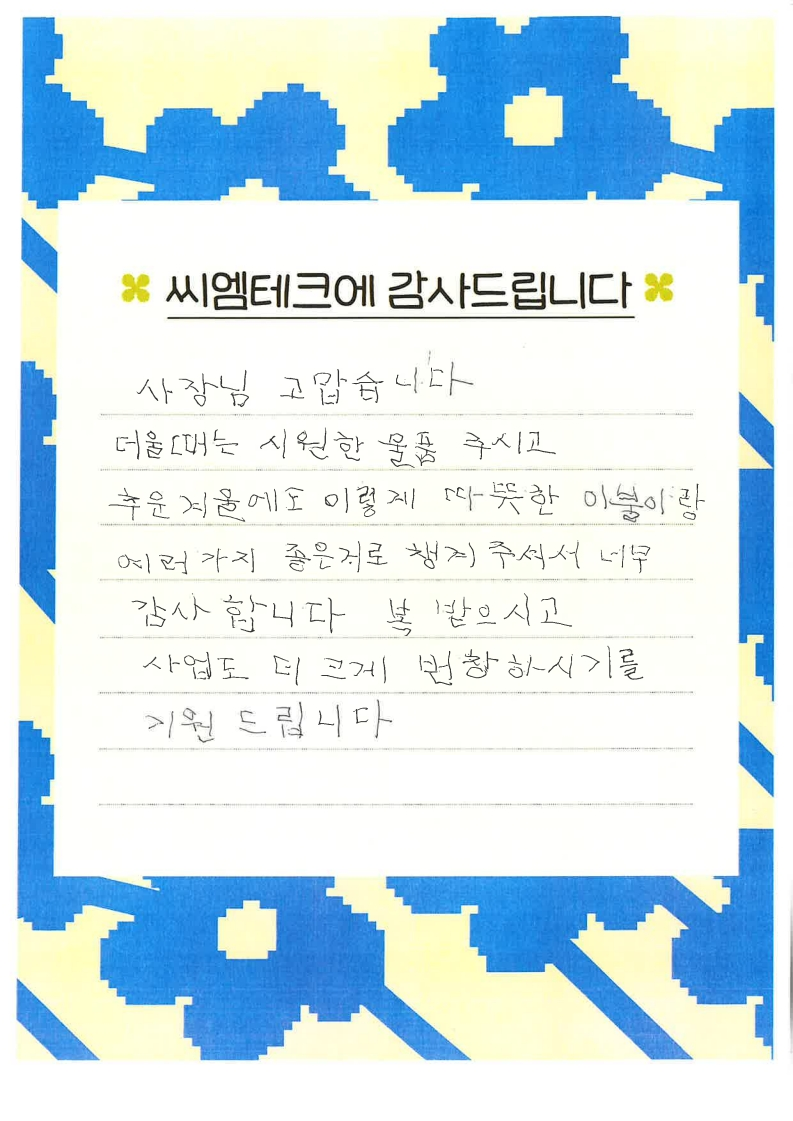 씨엠테크에 감사드립니다
사장님 고맙습니다
더울때는 시원한 물품 주시고
추운겨울에도 이렇게 따뜻한 이불이랑
여러가지 좋은거로 챙겨주셔서 너무
감사합니다 복 받으시고
사업도 더 크게 번창하시기를
기원 드립니다